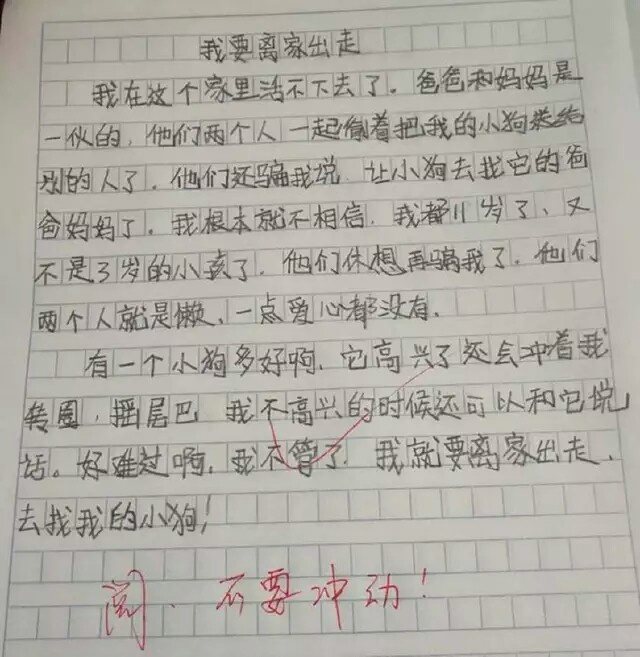 我要离家出走
我在这个家里活不下去了。爸爸和妈妈是
一伙的，他们两个人一起偷着把我的小狗送给
别的人了。他们还骗我说 让小狗去找它的爸
爸妈妈了。我根本就不相信，我都11岁了、又
不是3岁的小孩了，他们休想再骗我了。他们
两个人就是懒、一点爱心都没有。
有一个小狗多好啊，它高兴了还会冲着我
转圈，摇尾巴 我不高兴的时候还可以和它说
话。好难过啊，我不管了，我就要离家出走，
去找我的小狗！
阅、不要冲动！